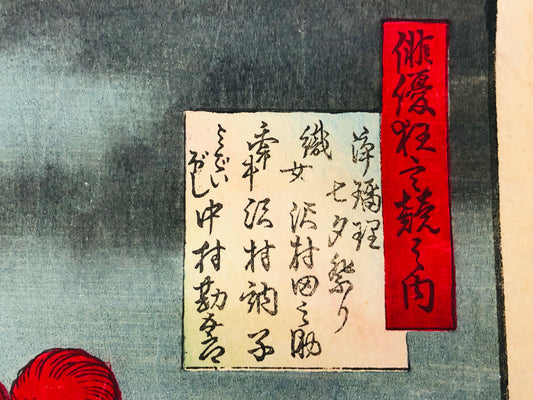 俳優狂言競之内
浄瑠理
七夕祭り
織女 沢村田之助
牽牛 沢村訥子
よばいぼし 中村勘五郎